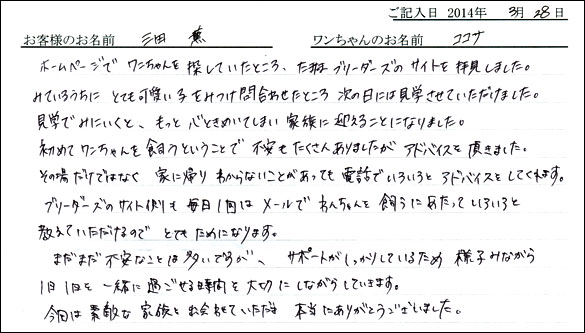 ご記入日 2014年 3月 28日
お客様のお名前 三田 薫 ワンちゃんのお名前 ココナ
ホームページで ワンちゃんを 探していたところ、たまたま ブリーダーズの サイトを 拝見しました。
みているうちに とても可愛い子をみつけ問合わせたところ 次の日には見学させていただけました。
見学でみにいくと、もっと 心ときめいてしまい 家族に 迎えることになりました。
初めて ワンちゃんを 飼うということで 不安も たくさんありましたが アドバイスを 頂きました。
その場だけではなく 家に帰り わからないことがあっても 電話でいろいろと アドバイスをしてくれます。
ブリーダーズのサイト側も 毎日1回は メールで わんちゃんを 飼うにあたっていろいろと
教えていただけるので とても ためになります。
まだまだ 不安なことは 多いですが、 サポートが しっかりしているため 様子みながら
1日1日を 一緒に 過ごせる時間を 大切に しながらしていきます。
今回は 素敵な 家族と お会わせていただき 本当にありがとうございました。